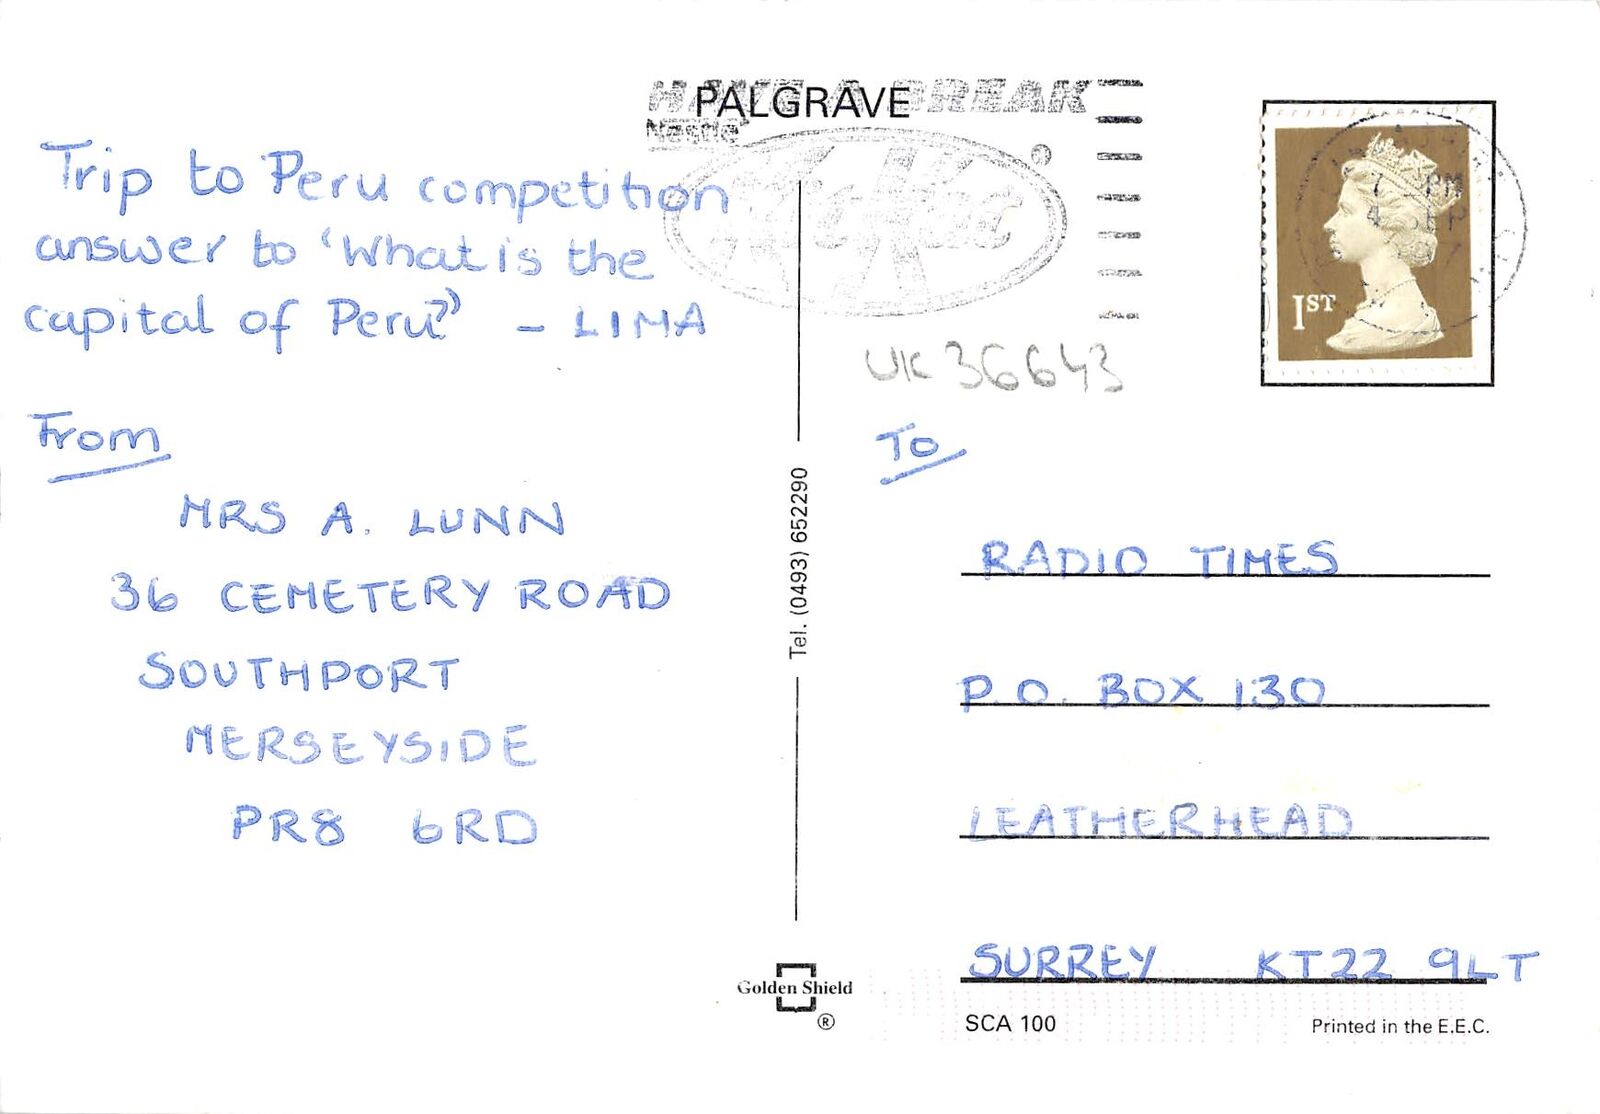 PALGRAVE
HAVE A BREAK
Nestlé
Kit Kat
®
Trip to Peru competition
answer to 'What is the
capital of Peru?'' - LIMA
From
MRS A. LUNN
36 CEMETERY ROAD
SOUTHPORT
MERSEYSIDE
PR8 6RD
Tel. (0493) 652290
Golden Shield
®
1ST
PM
SEP
UK 36643
To
RADIO TIMES
P.O. BOX 130
LEATHERHEAD
SURREY KT22 9LT
SCA 100
Printed in the E.E.C.